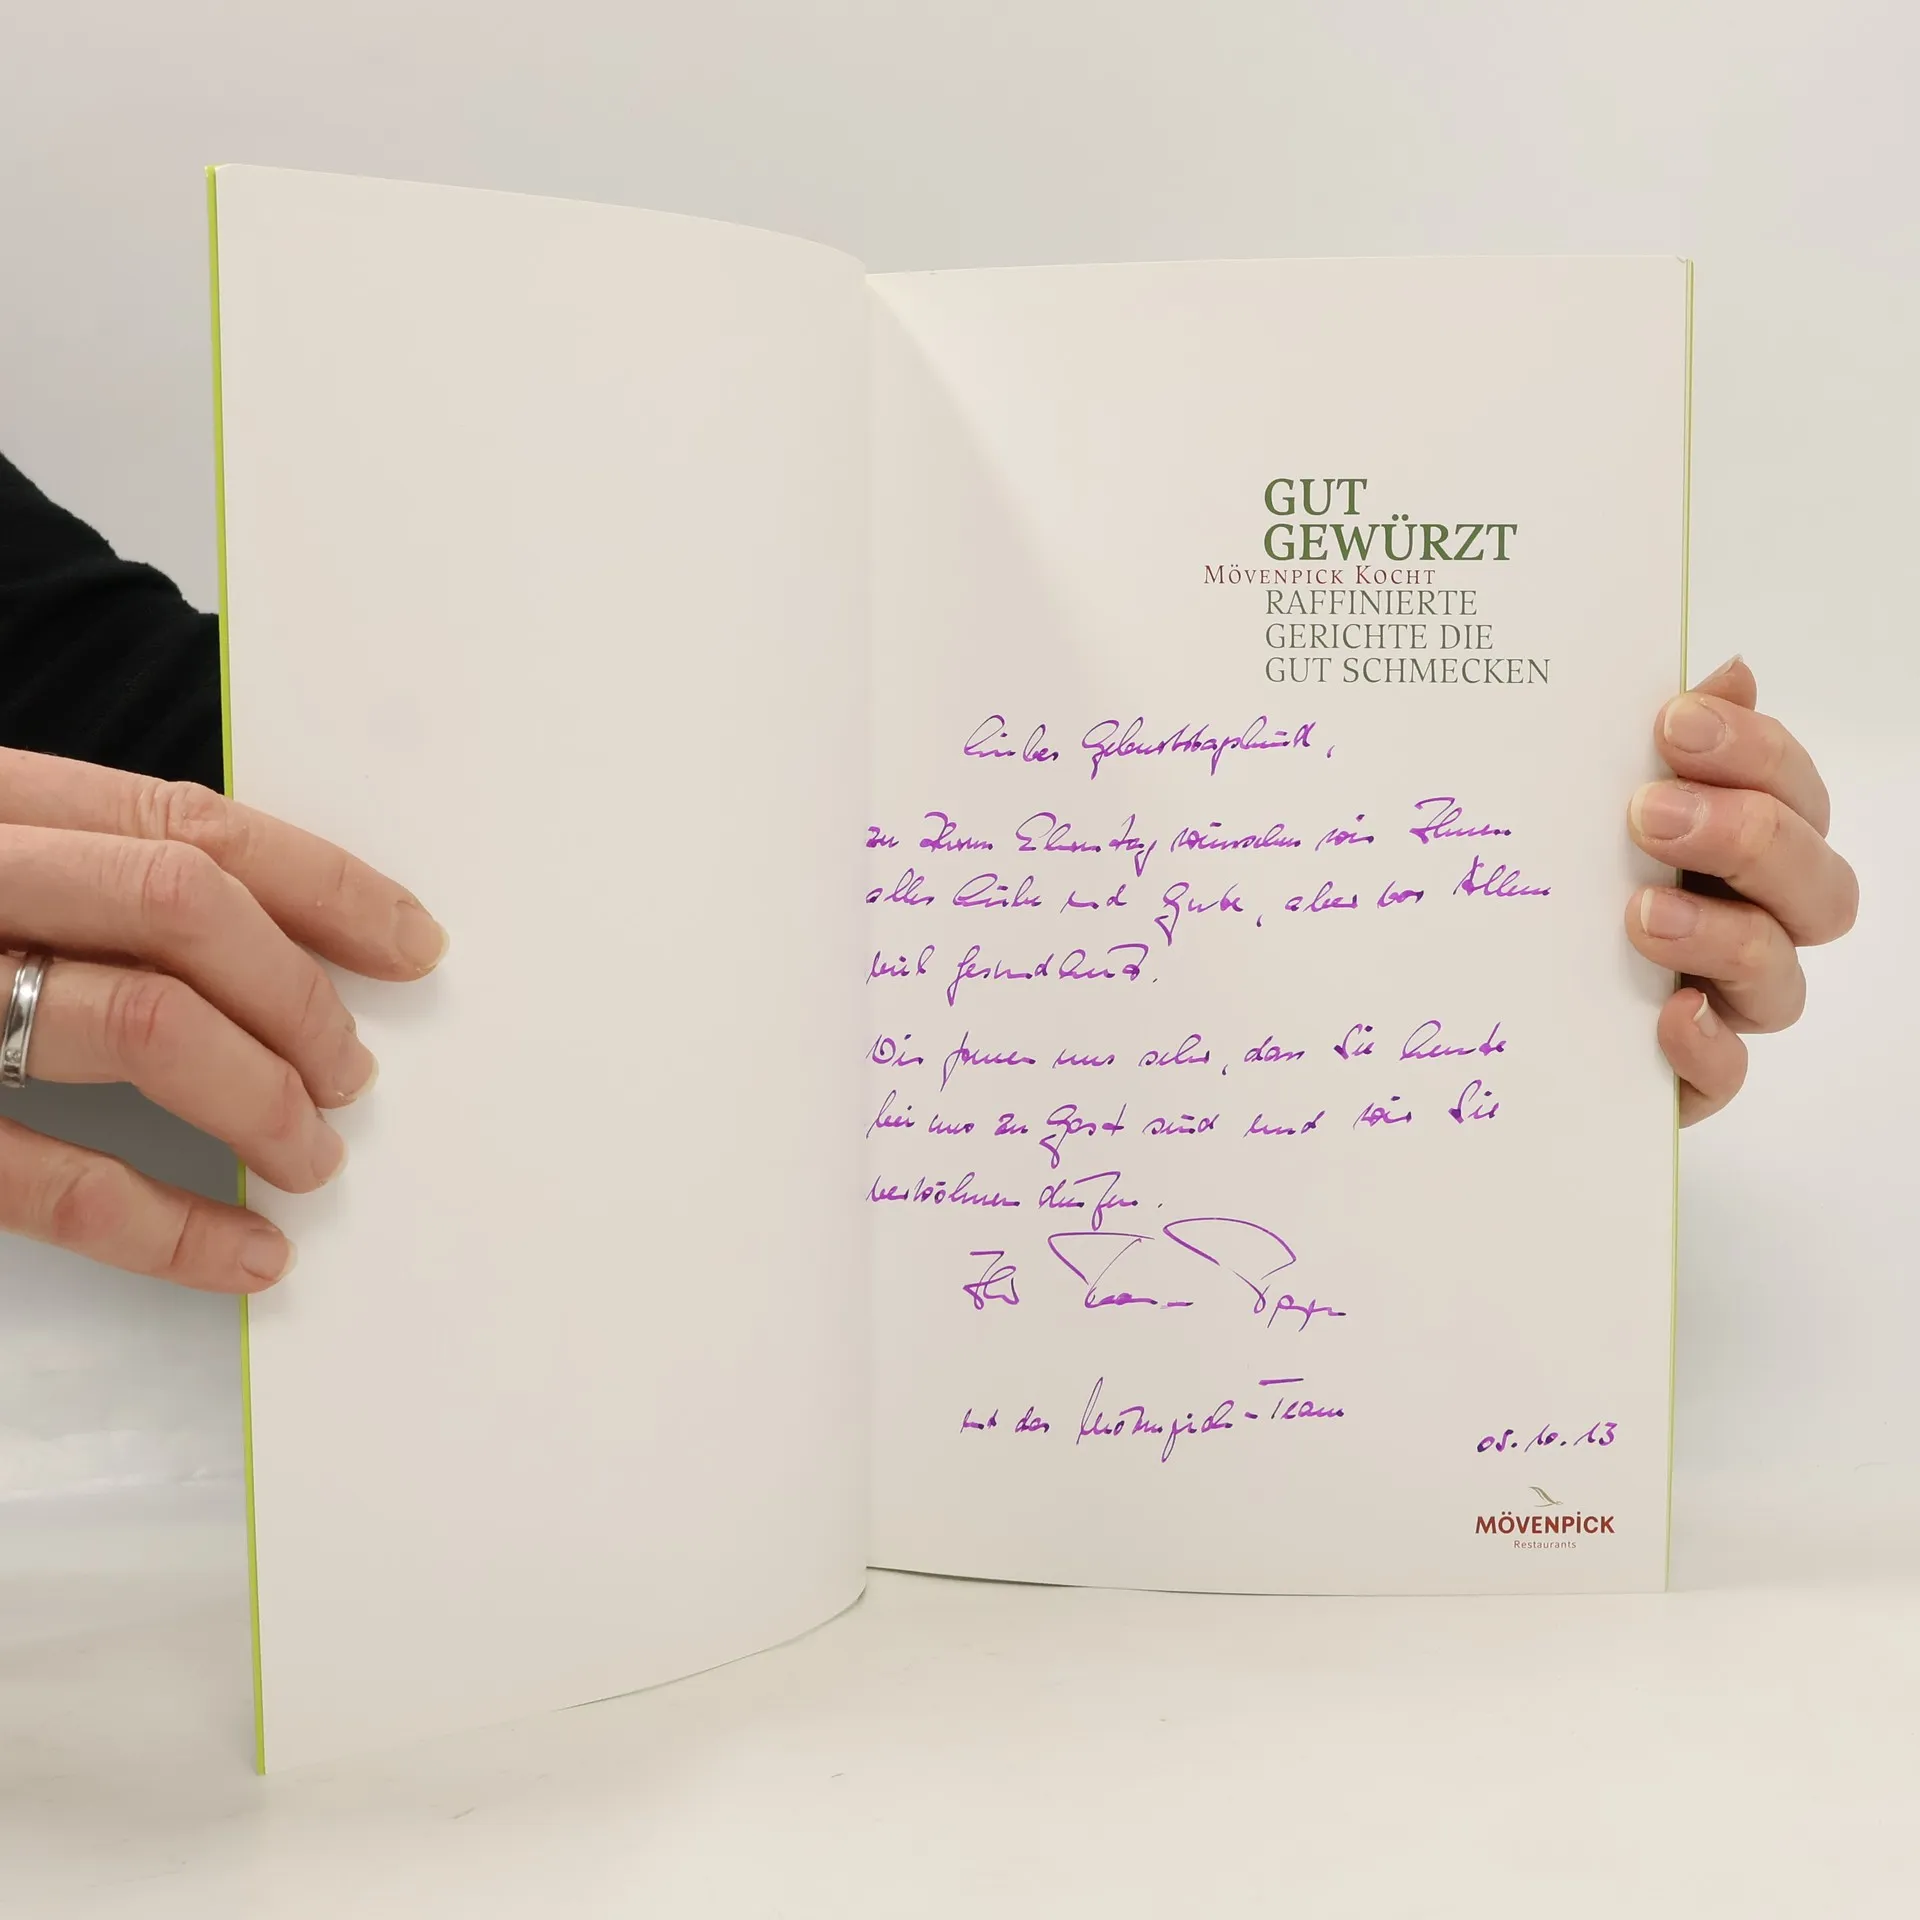 GUT
GEWÜRZT
MÖVENPICK KOCHT
RAFFINIERTE
GERICHTE DIE
GUT SCHMECKEN
Liebes Geburtstagskind,
zu Ihrem Ehrentag wünschen wir Ihnen
alles Liebe und Gute, aber vor Allem
viel Gesundheit.
Wir freuen uns sehr, dass Sie heute
bei uns zu Gast sind und wir Sie
verwöhnen dürfen.
Ihr
und das Mövenpick-Team
05.10.13
MÖVENPICK
Restaurants